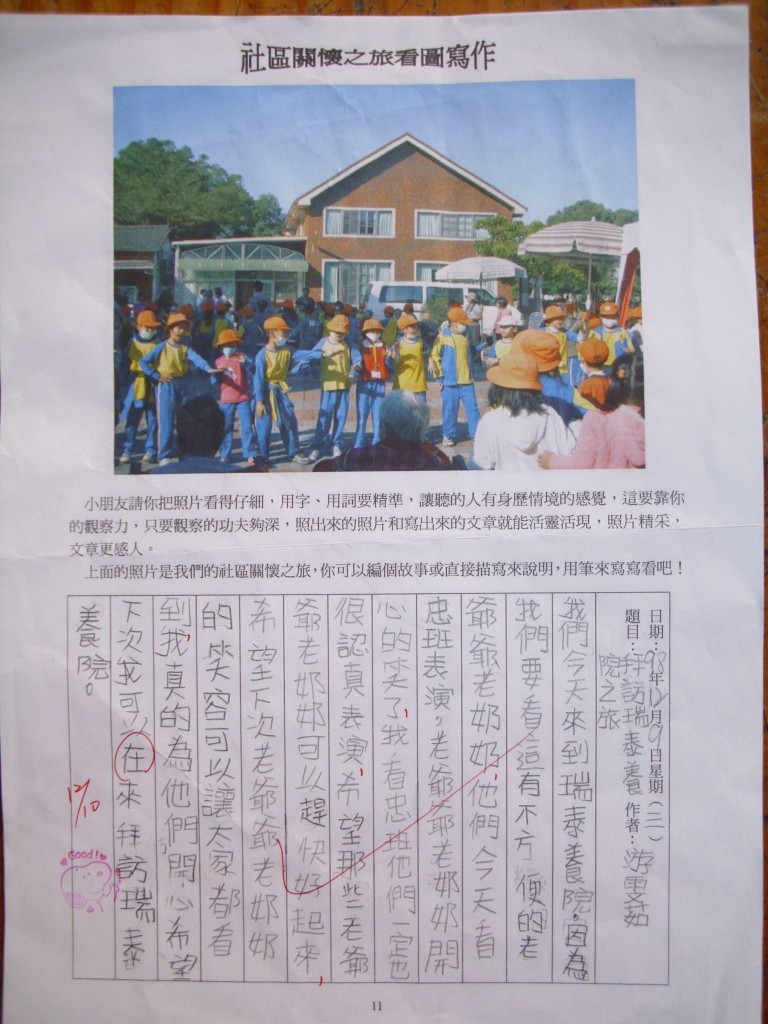 社區關懷之旅看圖寫作
小朋友請你把照片看得仔細，用字、用詞要精準，讓聽的人有身歷情境的感覺，這要靠你
的觀察力，只要觀察的功夫夠深，照出來的照片和寫出來的文章就能活靈活現，照片精采，
文章更感人。
上面的照片是我們的社區關懷之旅，你可以編個故事或直接描寫來說明，用筆來寫寫看吧！
日期：98年12月9日星期（三）
題目：拜訪瑞泰養院之旅
作者：游雯茹
我們今天來到瑞泰養院。因為
我們要看這有不方便的老
爺爺老奶奶，他們今天看
忠班表演，老爺爺老奶奶開
心的笑了，我看忠班他們一定也
很認真表演，希望那些老爺
爺老奶奶可以趕快好起來，
希望下次老爺爺老奶奶
的笑容可以讓大家都看
到，我真的為他們開心希望
下次我可以在來拜訪瑞泰
養院。
12/10
Good!
11